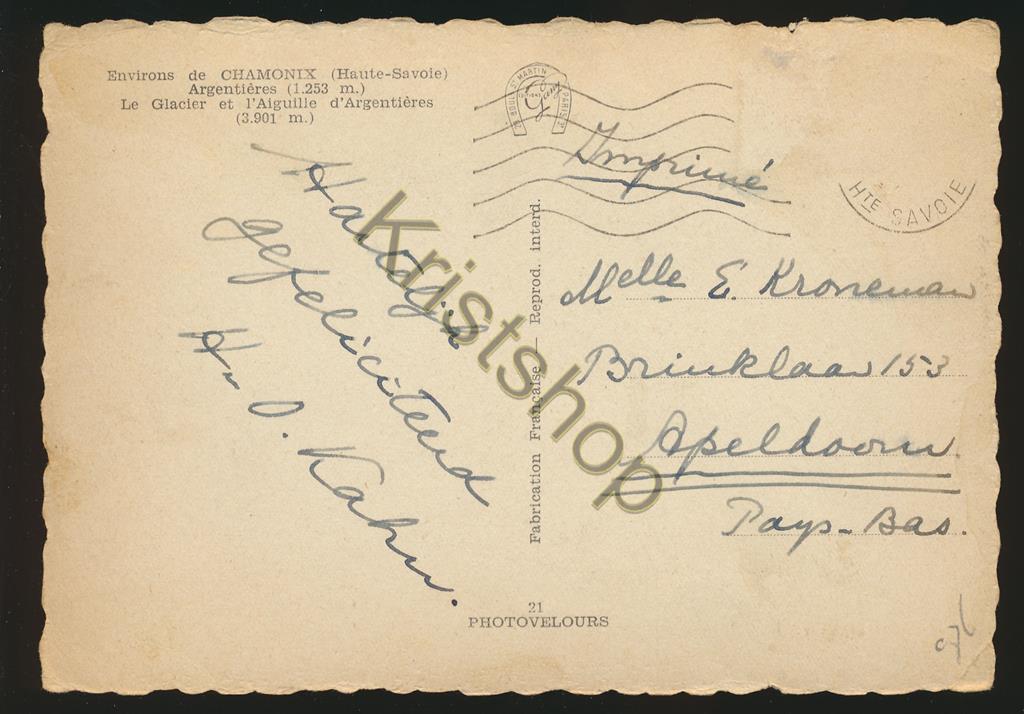 Environs de CHAMONIX (Haute-Savoie)
Argentières (1.253 m.)
Le Glacier et l'Aiguille d'Argentières
(3.901 m.)
BOUL. ST MARTIN PARIS
Imprimé
HTE SAVOIE
Hartelijk
gefeliciteerd
D. Kahn.
Fabrication Française — Reprod. interd.
Melle E. Kroneman
Brinklaan 153
Apeldoorn
Pays-Bas.
21
PHOTOVELOURS
Kristshop